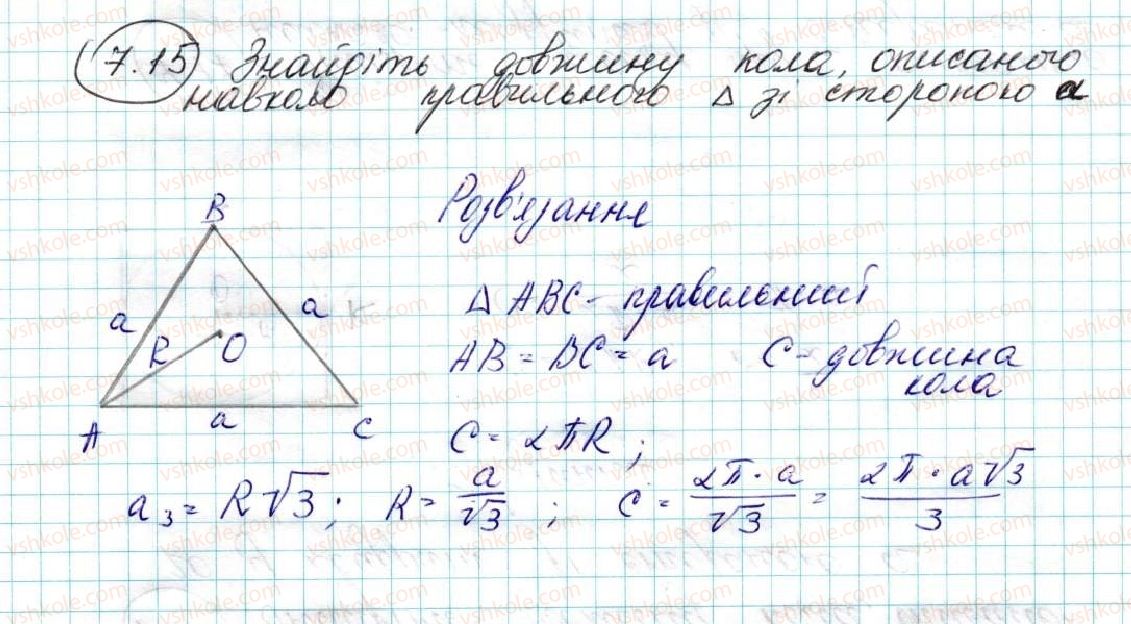 7.15 Знайдіть довжину кола, описаного
навколо правильного Δ зі стороною a
Розв'язання
B
a
a
R
O
A
a
C
Δ ABC - правильний
AB = BC = a C - довжина
кола
C = 2πR ;
a₃ = R√3 ; R = a/√3 ; C = 2π·a/√3 = 2π·a√3/3
vshkole.com